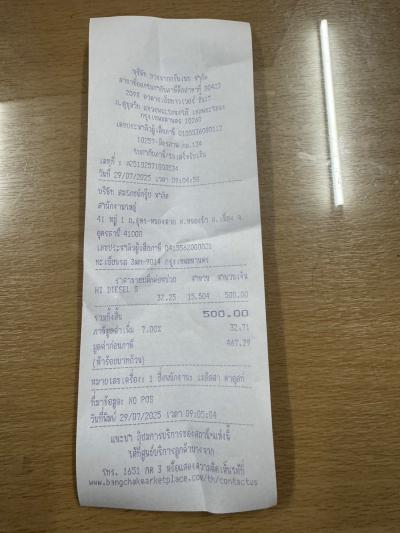 บริษัท บางจากกรีนเนท จำกัด
สาขาที่ออกใบกำกับภาษีคือสาขาที่ 00427
2098 อาคารเอ็มทาวเวอร์ ชั้น7
ถ.สุขุมวิท แขวงพระโขนงใต้ เขตพระโขนง
กรุงเทพมหานคร 10260
เลขประจำตัวผู้เสียภาษี 0105536080112
10257-มิตรภาพ กม.134
ใบกำกับภาษี/ใบเสร็จรับเงิน
เลขที่ :
วันที่ 29/07/2025 เวลา 09:04:58
บริษัท จำกัด
สำนักงานใหญ่
41 หมู่ 1 ต.หนองบัว อ.เมือง จ.
อุดรธานี 41000
เลขประจำตัวผู้เสียภาษี 0415562000021
ทะเบียนรถ 3ฒก-9014 กรุงเทพมหานคร
ราคาขายปลีกต่อหน่วย จำนวน จำนวนเงิน
HI DIESEL S
32.25 15.504 500.00
รวมทั้งสิ้น 500.00
ภาษีมูลค่าเพิ่ม 7.00% 32.71
มูลค่าก่อนภาษี 467.29
(ห้าร้อยบาทถ้วน)
หมายเลขเครื่อง: 1 ชื่อพนักงาน:
ที่มาข้อมูล: NO POS
วันที่พิมพ์ 29/07/2025 เวลา 09:05:04
แนะนำ ติชมการบริการของสถานีแห่งนี้
ได้ที่ศูนย์บริการลูกค้าบางจาก
โทร. 1651 กด 3 หรือแสดงความคิดเห็นได้ที่
www.bangchakmarketplace.com/th/contactus